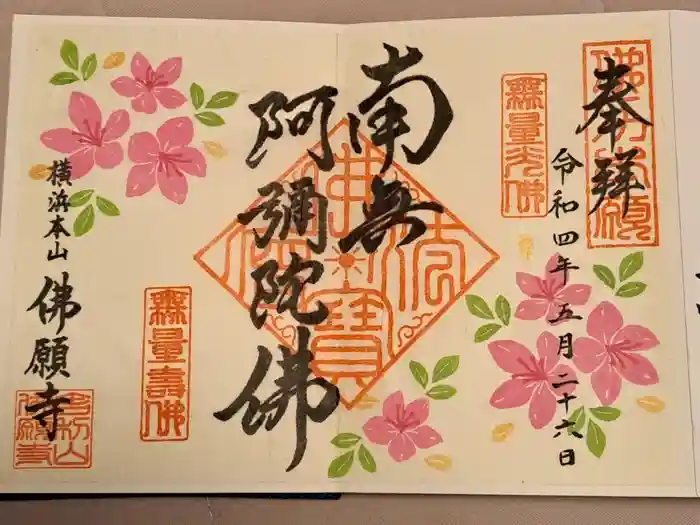 奉拝
令和四年五月二十六日
無量光佛
南無
阿彌陀佛
佛法僧寶
無量壽佛
横浜本山
佛願寺